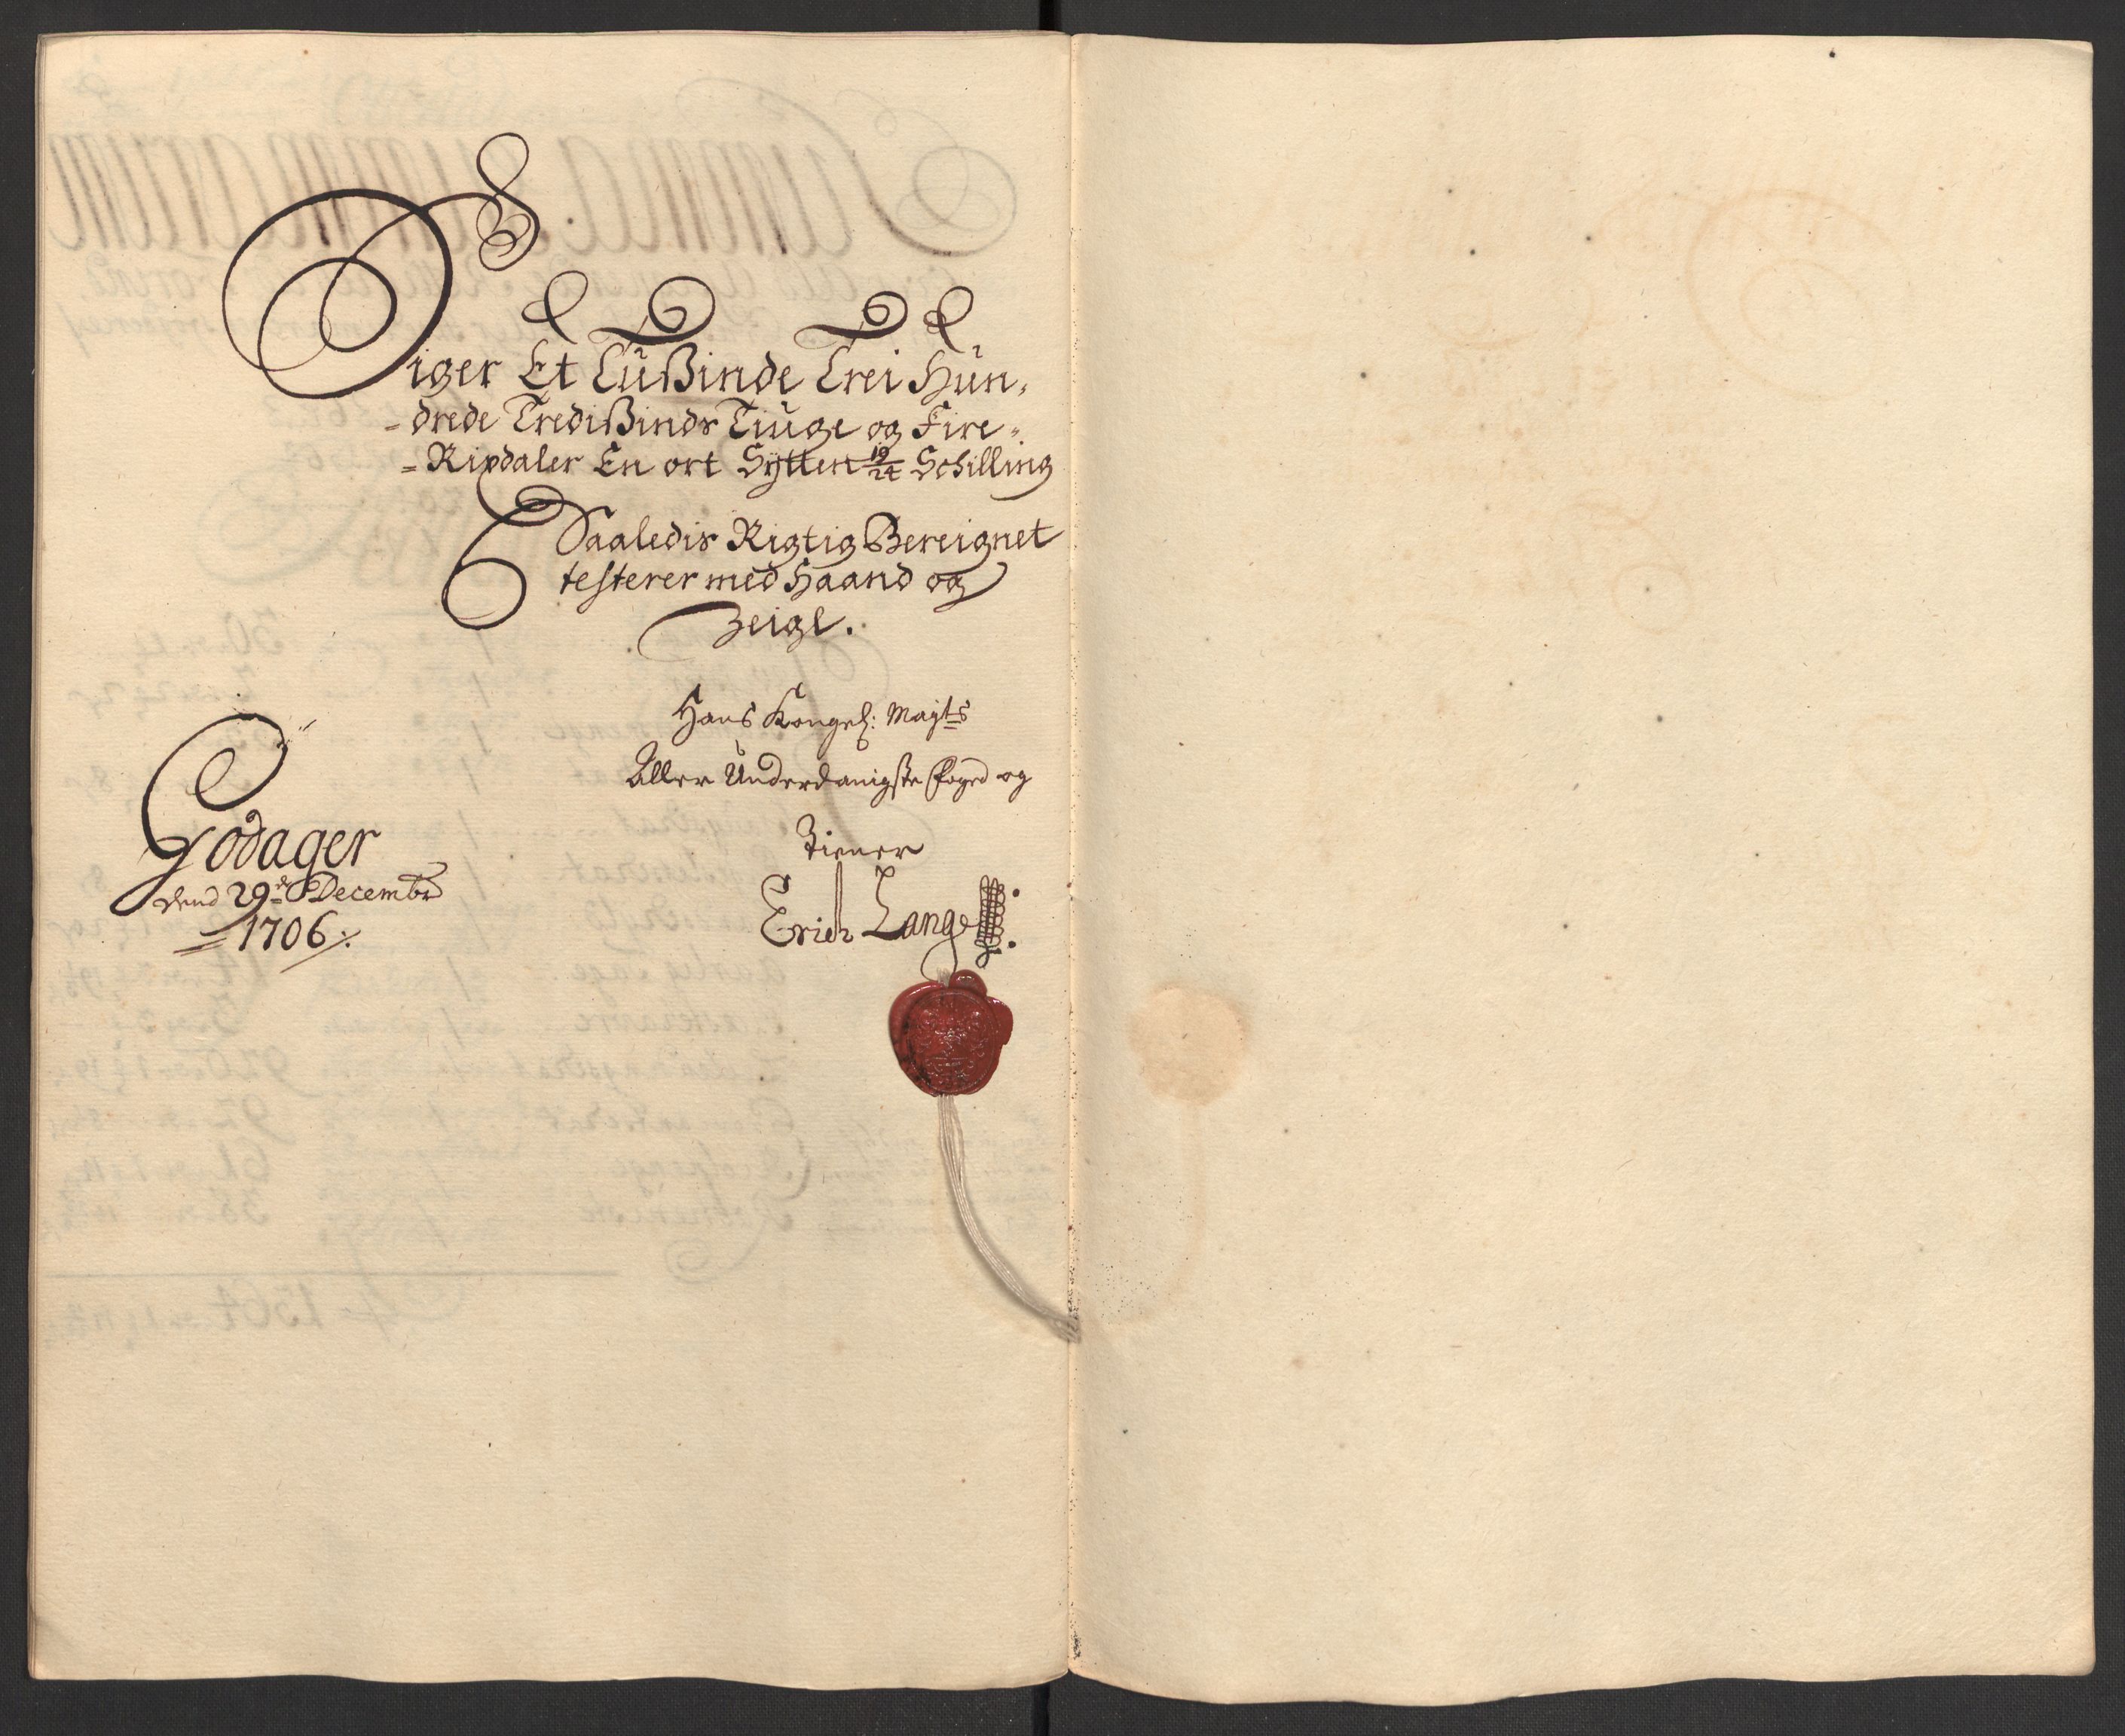 Siger Et Tußinde Trei Hun,
-drede TrediSinds Tiuge og Fire-
=Rixdaler En ort Sytten 19/24 Schilling
Saaledis Rigtig Bereignet
testerer med Haand og
Zeigl.
Hans Kongel: Mayts
Aller Underdanigste Foged og
Tiener
Erich Lange
Godager
dend 29de Decembr
1706